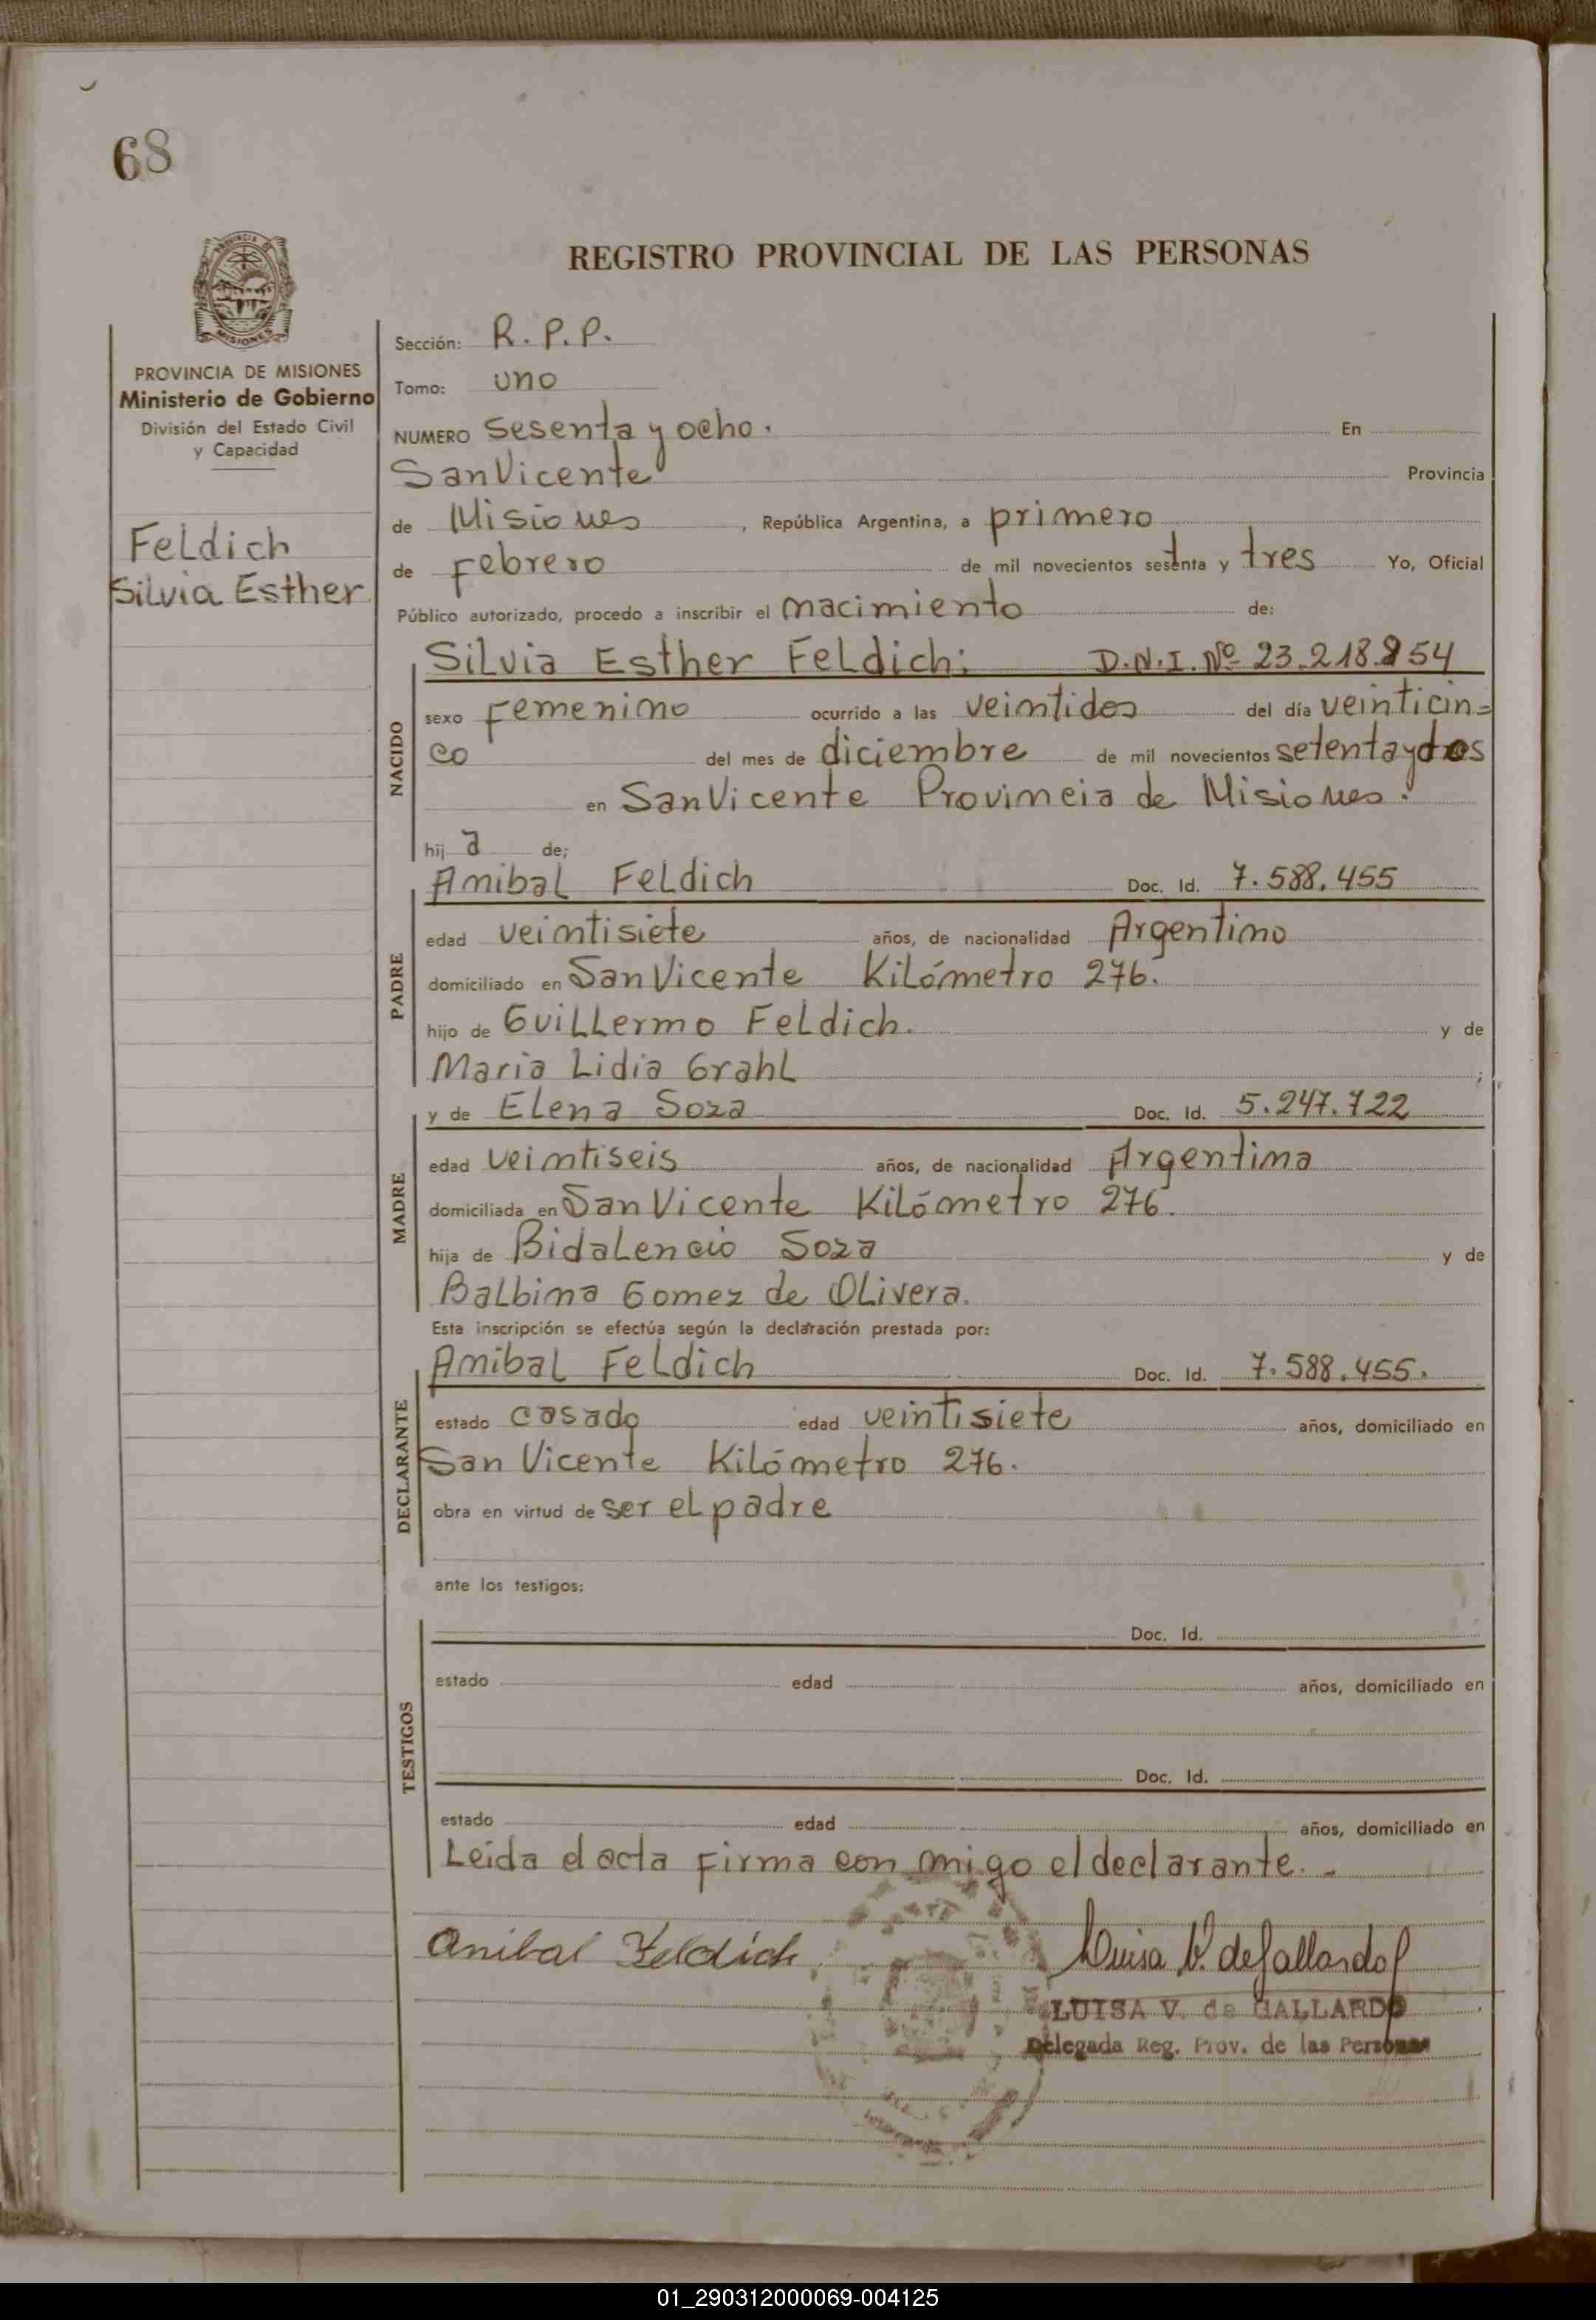 68
REGISTRO PROVINCIAL DE LAS PERSONAS
PROVINCIA DE MISIONES
Ministerio de Gobierno
División del Estado Civil
y Capacidad
Feldich
Silvia Esther
Sección: R.P.P.
Tomo: uno
NUMERO Sesenta y ocho. En
San Vicente Provincia
de Misiones, República Argentina, a primero
de Febrero de mil novecientos setenta y tres Yo, Oficial
Público autorizado, procedo a inscribir el nacimiento de:
NACIDO
Silvia Esther Feldich: D.N.I. Nº 23.218.854
sexo Femenino ocurrido a las veintidos del día veinticin=
co del mes de diciembre de mil novecientos setenta y dos
en San Vicente Provincia de Misiones.
hij a de;
PADRE
Anibal Feldich Doc. Id. 7.588.455
edad veintisiete años, de nacionalidad Argentino
domiciliado en San Vicente Kilómetro 276.
hijo de Guillermo Feldich. y de
Maria Lidia Grahl ;
MADRE
y de Elena Soza Doc. Id. 5.247.722
edad veintiseis años, de nacionalidad Argentina
domiciliada en San Vicente Kilómetro 276.
hija de Bidalencio Soza y de
Balbina Gomez de Olivera.
Esta inscripción se efectúa según la declaración prestada por:
DECLARANTE
Anibal Feldich Doc. Id. 7.588.455.
estado casado edad veintisiete años, domiciliado en
San Vicente Kilómetro 276.
obra en virtud de ser el padre
ante los testigos:
TESTIGOS
Doc. Id.
estado edad años, domiciliado en
Doc. Id.
estado edad años, domiciliado en
Leida el acta firma con migo el declarante.-
Anibal Feldich Luisa V. de Gallardo
LUISA V. de GALLARDO
Delegada Reg. Prov. de las Personas
01_290312000069-004125